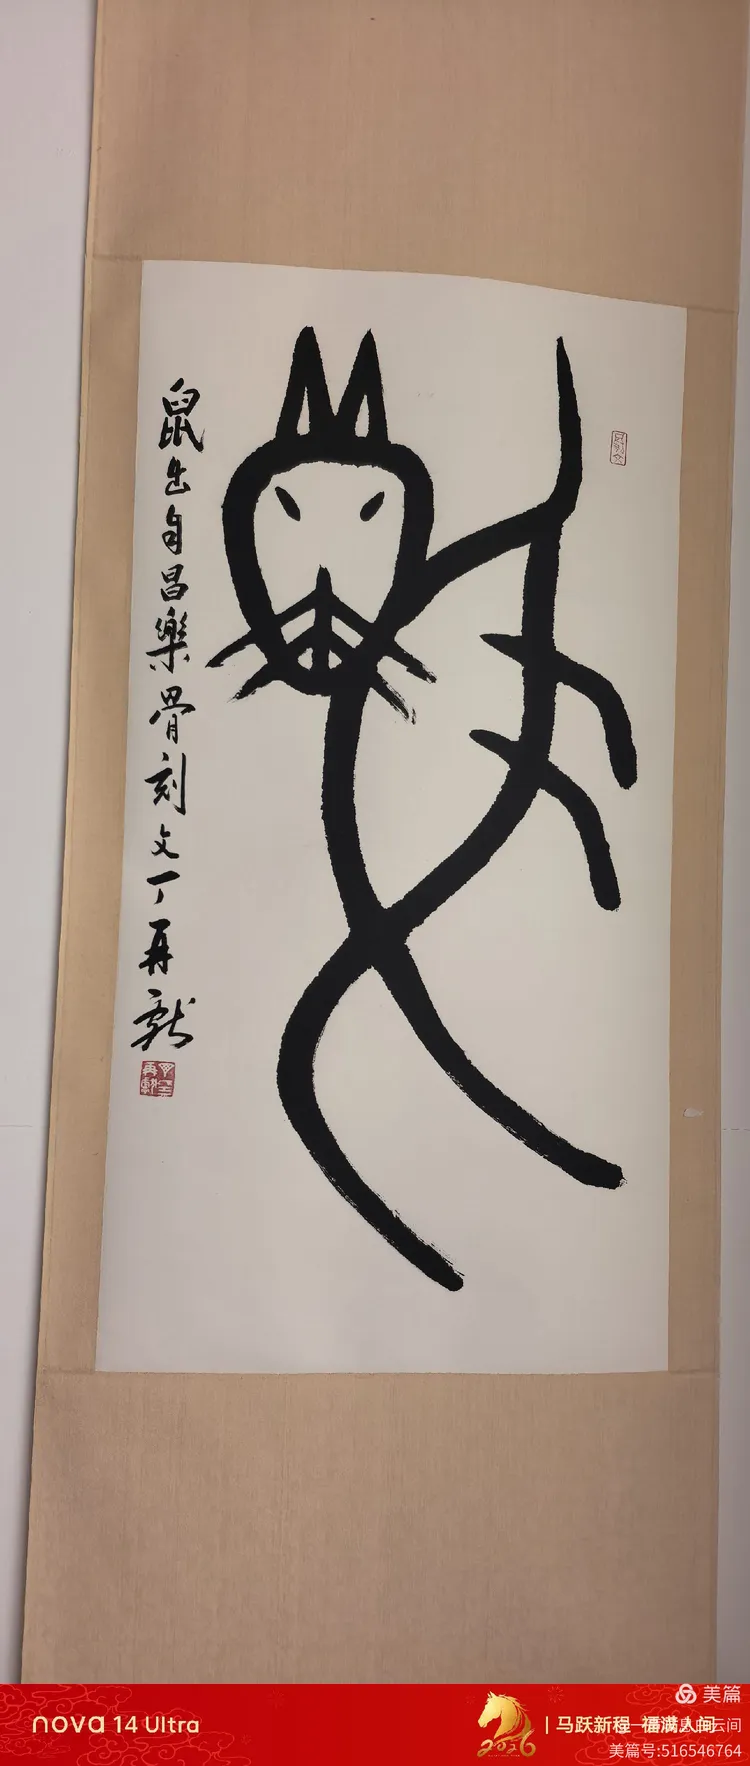 鼠出自昌樂骨刻文丁再献
nova 14 Ultra
马跃新程 福满人间
美篇
美篇号:516546764